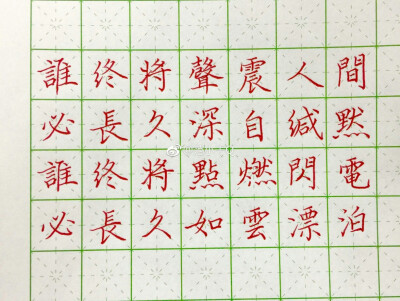 誰終將聲震人間
必長久深自緘默
誰終將點燃閃電
必長久如雲漂泊